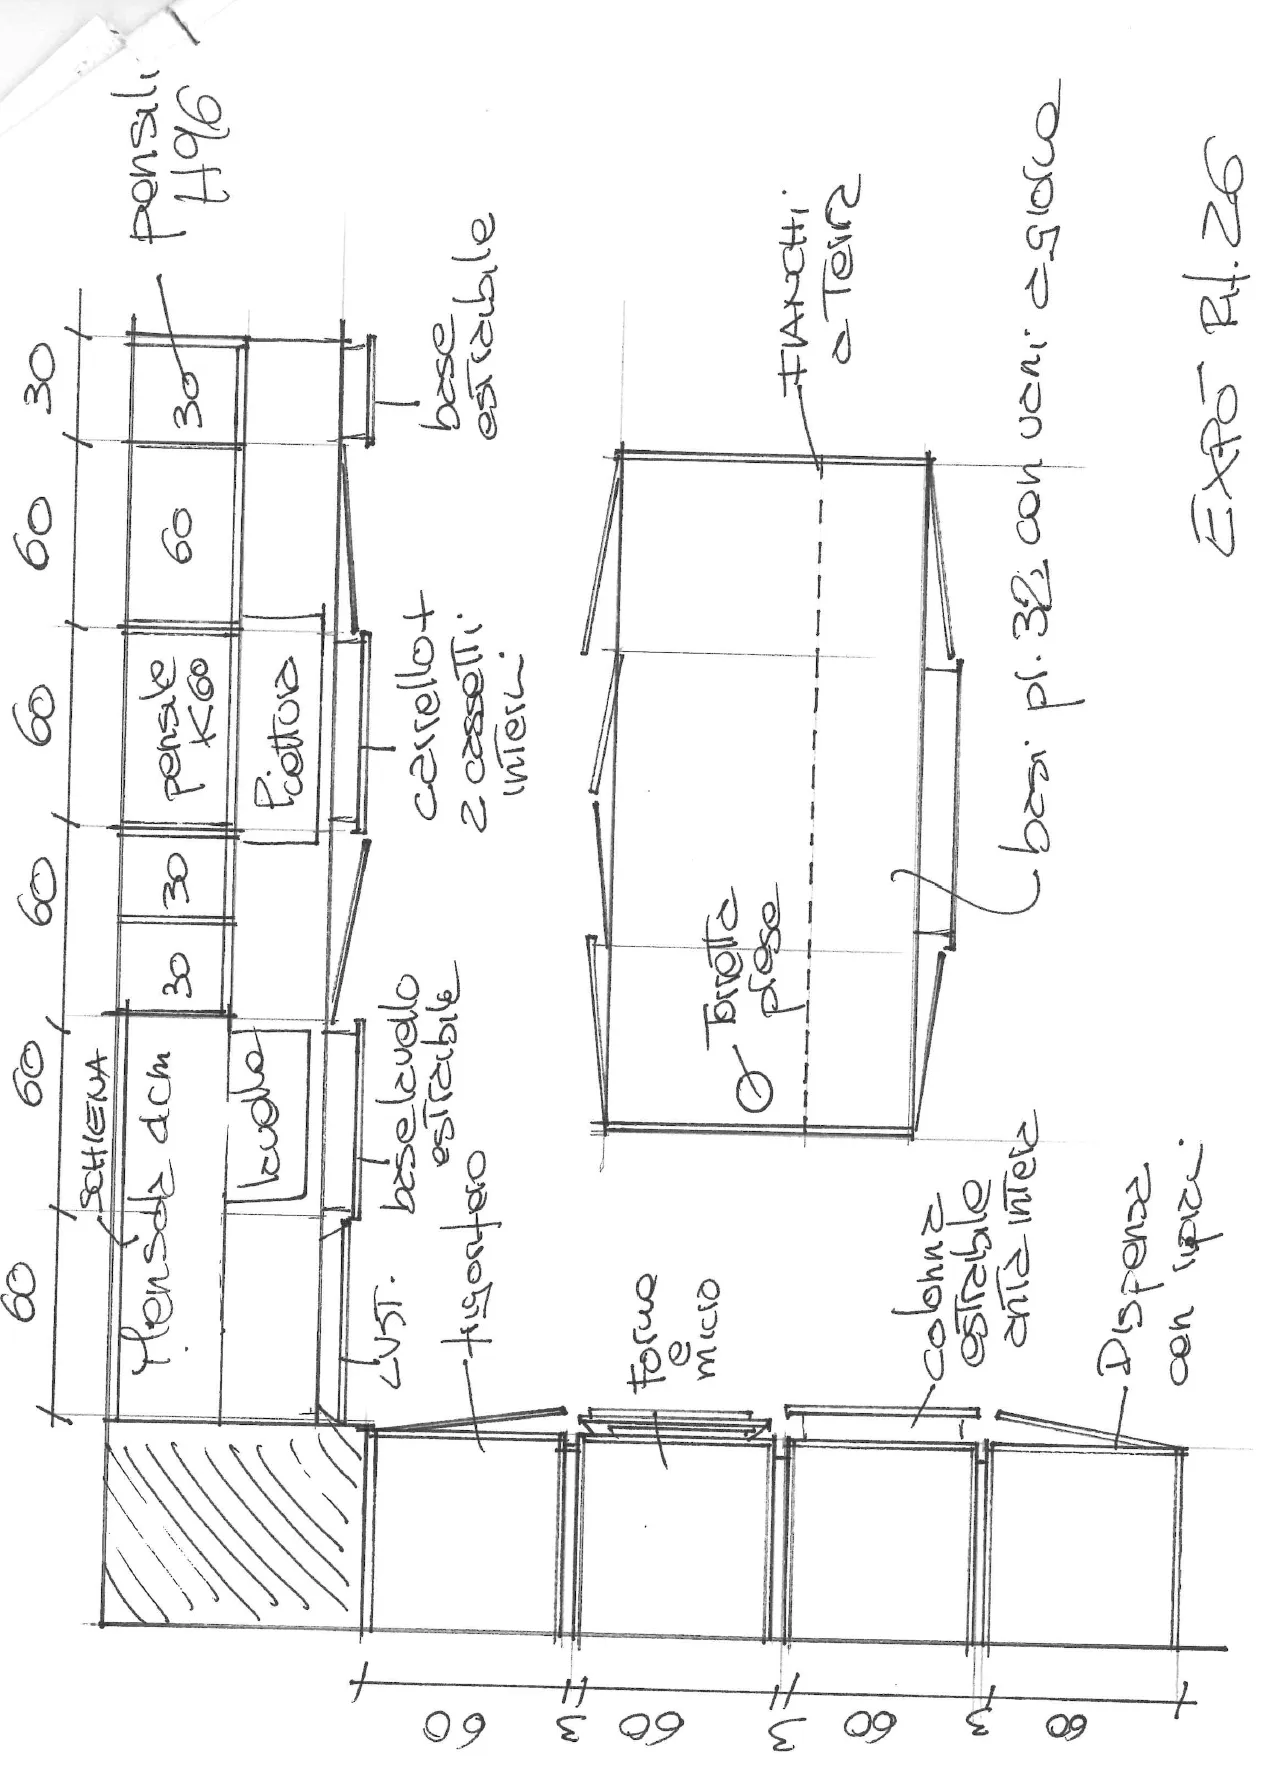 60
60
60
60
60
30
SCHIENA
Mensola dcm
30
30
pensile
K60
60
30
pensili
H96
lavello
Piattura
LVST.
base lavello
estraibile
carrello +
2 cassetti
interni
base
estraibile
frigorifero
Forno
e
micro
colonna
estraibile
anta intera
Dispensa
con ripiani
60
3
60
3
60
3
60
Torretta
prese
FIANCHI
a Terra
basi pr. 32 con vani a giorno
EXPÒ Rif. 26